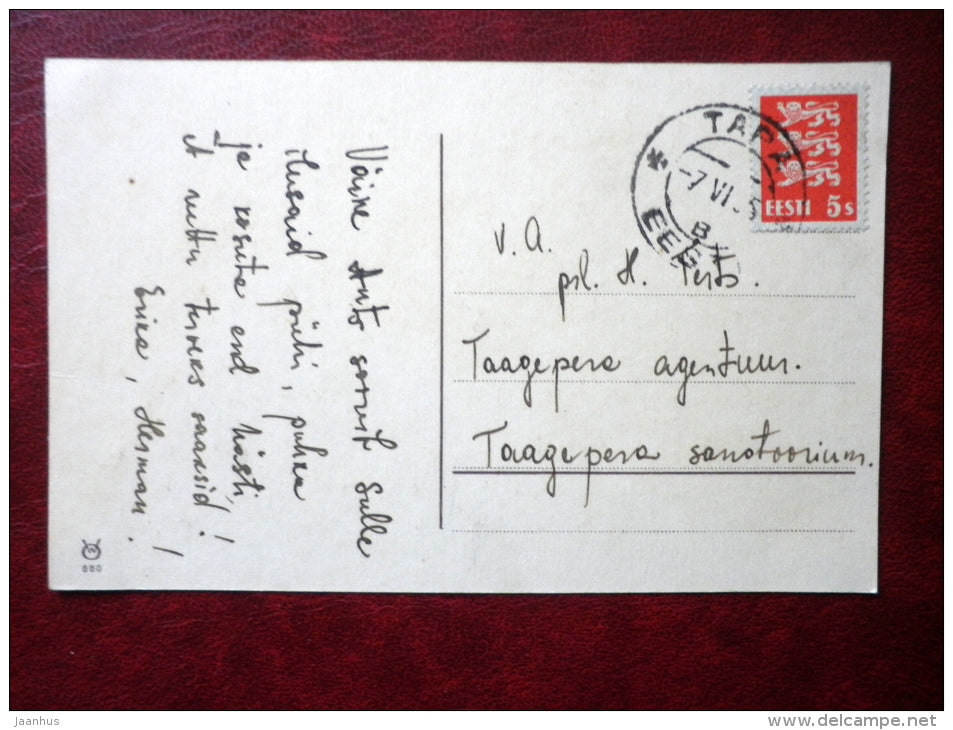 Väike Ants soovib Sulle
ilusaid pühi, puhka
ja kosuta end hästi,
et ruttu terveks saaksid!
Erica, Herman.!
660
TAPA
-7 VI
B
EESTI
EESTI 5s
V. A.
prl. H.
Taagepera agentuur.
Taagepera sanatoorium.
Jaanhus
www.delcampe.net